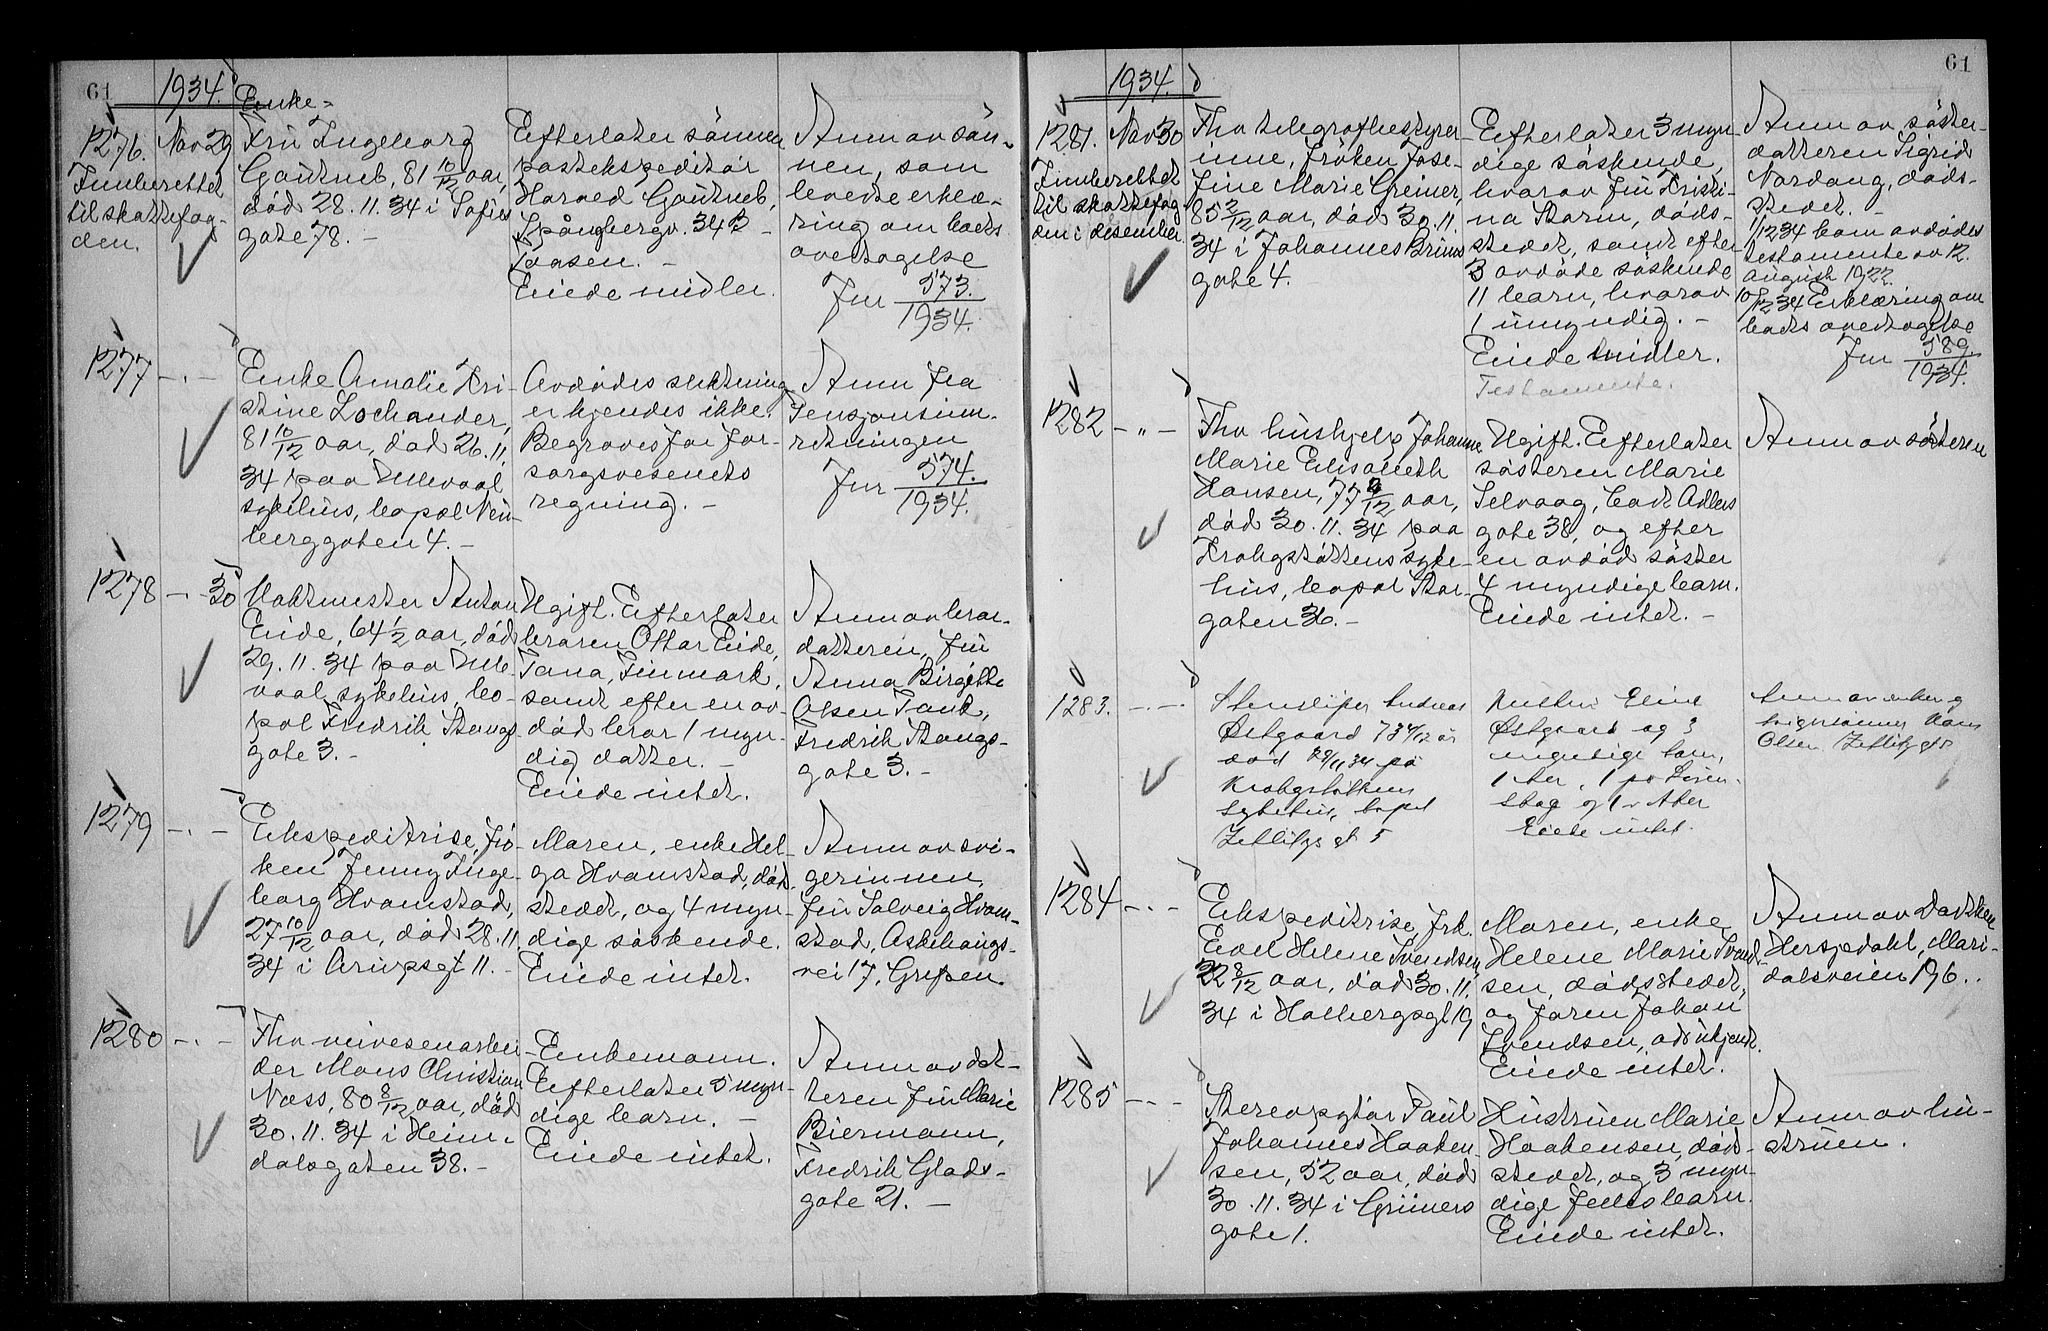 61
1934.
1276.
Innberettet
til skattefog-
den.
Nov 29
Enke-
Fru Ingeborg
Gautneb, 81 10/12 aar,
död 28.11.34 i Sofies
gate 78. -
Efterlater sönnen
postekspeditör
Harald Gautneb,
Spångbergv. 34 B -
Taasen. -
Eiede midler.
Anm av sön-
nen, som
leverte erklæ-
ring om boets
overtagelse
Jnr 573.
1934.
1277
- " -
Enke Amalie Kri-
stine Lochander,
81 10/12 aar, död 26.11.
34 paa Ullevaal
sykehus, bopæl Neu-
berggaten 4. -
Avdödes slektning
er kjendes ikke.
Begraves for for-
sorgsvesenets
regning. -
Anm fra
Pensjonsinn-
retningen
Jnr 574.
1934.
1278
- " - 30
Vaktmester Anton
Eide, 64 1/2 aar, död
29.11.34 paa Ulle-
vaal sykehus, bo-
pæl Fredrik Stangs
gate 3. -
Ugift. Efterlater
broren Ottar Eide,
Tana, Finmark,
samt efter en av-
död bror 1 myn-
dig datter. -
Eiede intet.
Anm av bror-
datteren, fru
Anna Birgitte
Olsen
Fredrik Stangs-
gate 3. -
1279
- " -
Ekspeditrise, frö-
ken Jenny Inge-
borg Hvamstad,
27 10/12 aar, död 28.11.
34 i Arupsgt 11. -
Moren, enke Hel-
ga Hvamstad, död-
stedet, og 4 myn-
dige söskende.
Eiede intet.
Anm av svi-
gerinnen,
fru Solveig Hvam-
stad, Askehaugs-
vei 17, Grefsen.
1280
- " -
Fhv veivesenarbei-
der Mons Christian
Næss, 80 8/12 aar, död
30.11.34 i Heim-
dalsgaten 38. -
Enkemann.
Efterlater 5 myn-
dige barn. -
Eiede intet.
Anm av dat-
teren fru Marie
Biermann,
Fredrik Glads-
gate 21. -
61
1934.
1281.
Innberettet
til skattefog
den i desember
Nov 30
Fhv telegrafbestyrer
inne, fröken Jose-
fine Marie Greiner,
85 2/12 aar, död 30.11.
34 i Johannes Bruns
gate 4.
Efterlater 3 myn
dige söskende,
hvorav fru Kristi-
na Storm, döds-
stedet, samt efter
3 avdöde söskende
11 barn, hvorav
1 umyndig. -
Eiede midler.
Testamente.
Anm av söster-
datteren Sigrid
Nordang, döds-
stedet. -
1/12 34 kom avdödes
testamente av 12.
august 1922.
10/12 34 Erklæring om
boets overtagelse
Jnr 589
1934.
1282
- " -
Fhv hushjelp Johanne
Marie Elisabeth
Hansen, 77 aar,
död 30.11.34 paa
Krohgstöttens syke-
hus, bopæl Stor-
gaten 36. -
Ugift. Efterlater
sösteren Marie
Selvaag, Carl Adlers
gate 38, og efter
en avdöd söster
4 myndige barn.
Eiede intet. -
Anm av sösteren
1283.
- " -
Stensliper Andreas
Østgaard 73 aar
död 29/11 34 på
Krohgstöttens
sykehus, bopæl
Zetlitzgt 5
Hustru Eline
Østgaard og 3
myndige barn,
1 Aker, 1 på Loren-
skog og 1 i Aker
Eiede intet.
Anm av enken og
svigersønnen Hans
Olsen Zetlitzgt 5
1284
- " -
Ekspeditrise, frk.
Evel Helene Svendsen,
22 8/12 aar, död 30.11.
34 i Holbergsgt 19
Moren, enke
Helene Marie Svend-
sen, dödsstedet,
og faren Johan
Svendsen, adr ukjent.
Eiede intet.
Anm av
Herspedahl, Mari-
dalsveien 196.
1285
- " -
Stereopytör Paul
Johannes Haaken-
sen, 52 aar, död
30.11.34 i Grüners
gate 1.
Hustruen Marie
Haakensen, död-
stedet, og 3 myn-
dige felles barn.
Eiede intet.
Anm av hu-
struen.